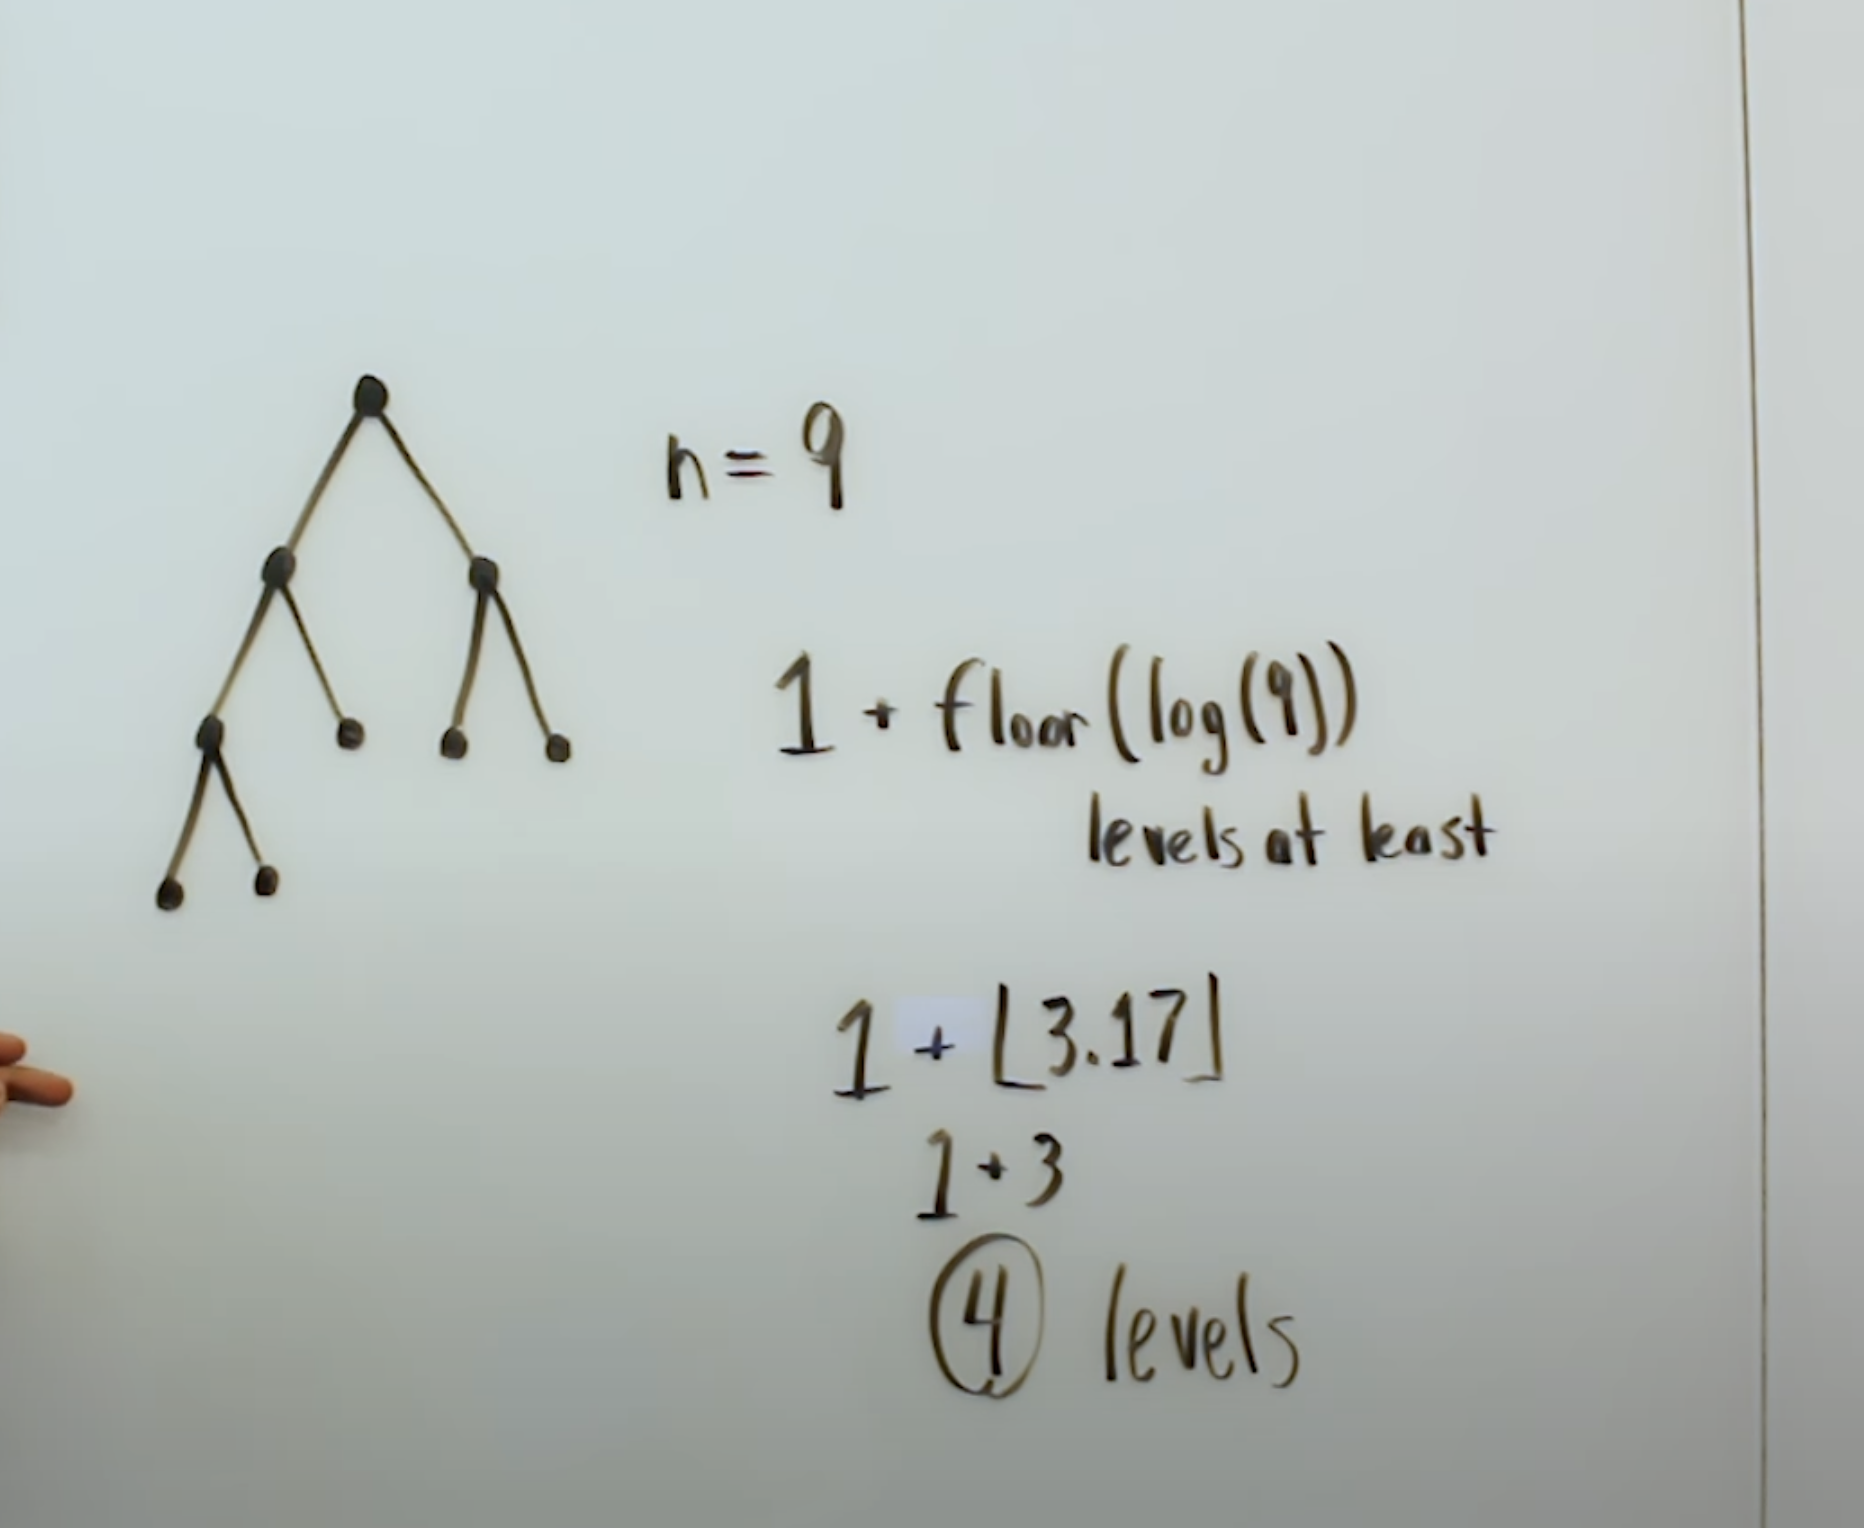 n = 9
1 + floor(log(9))
levels at least
1 + ⌊3.17⌋
1 + 3
4 levels